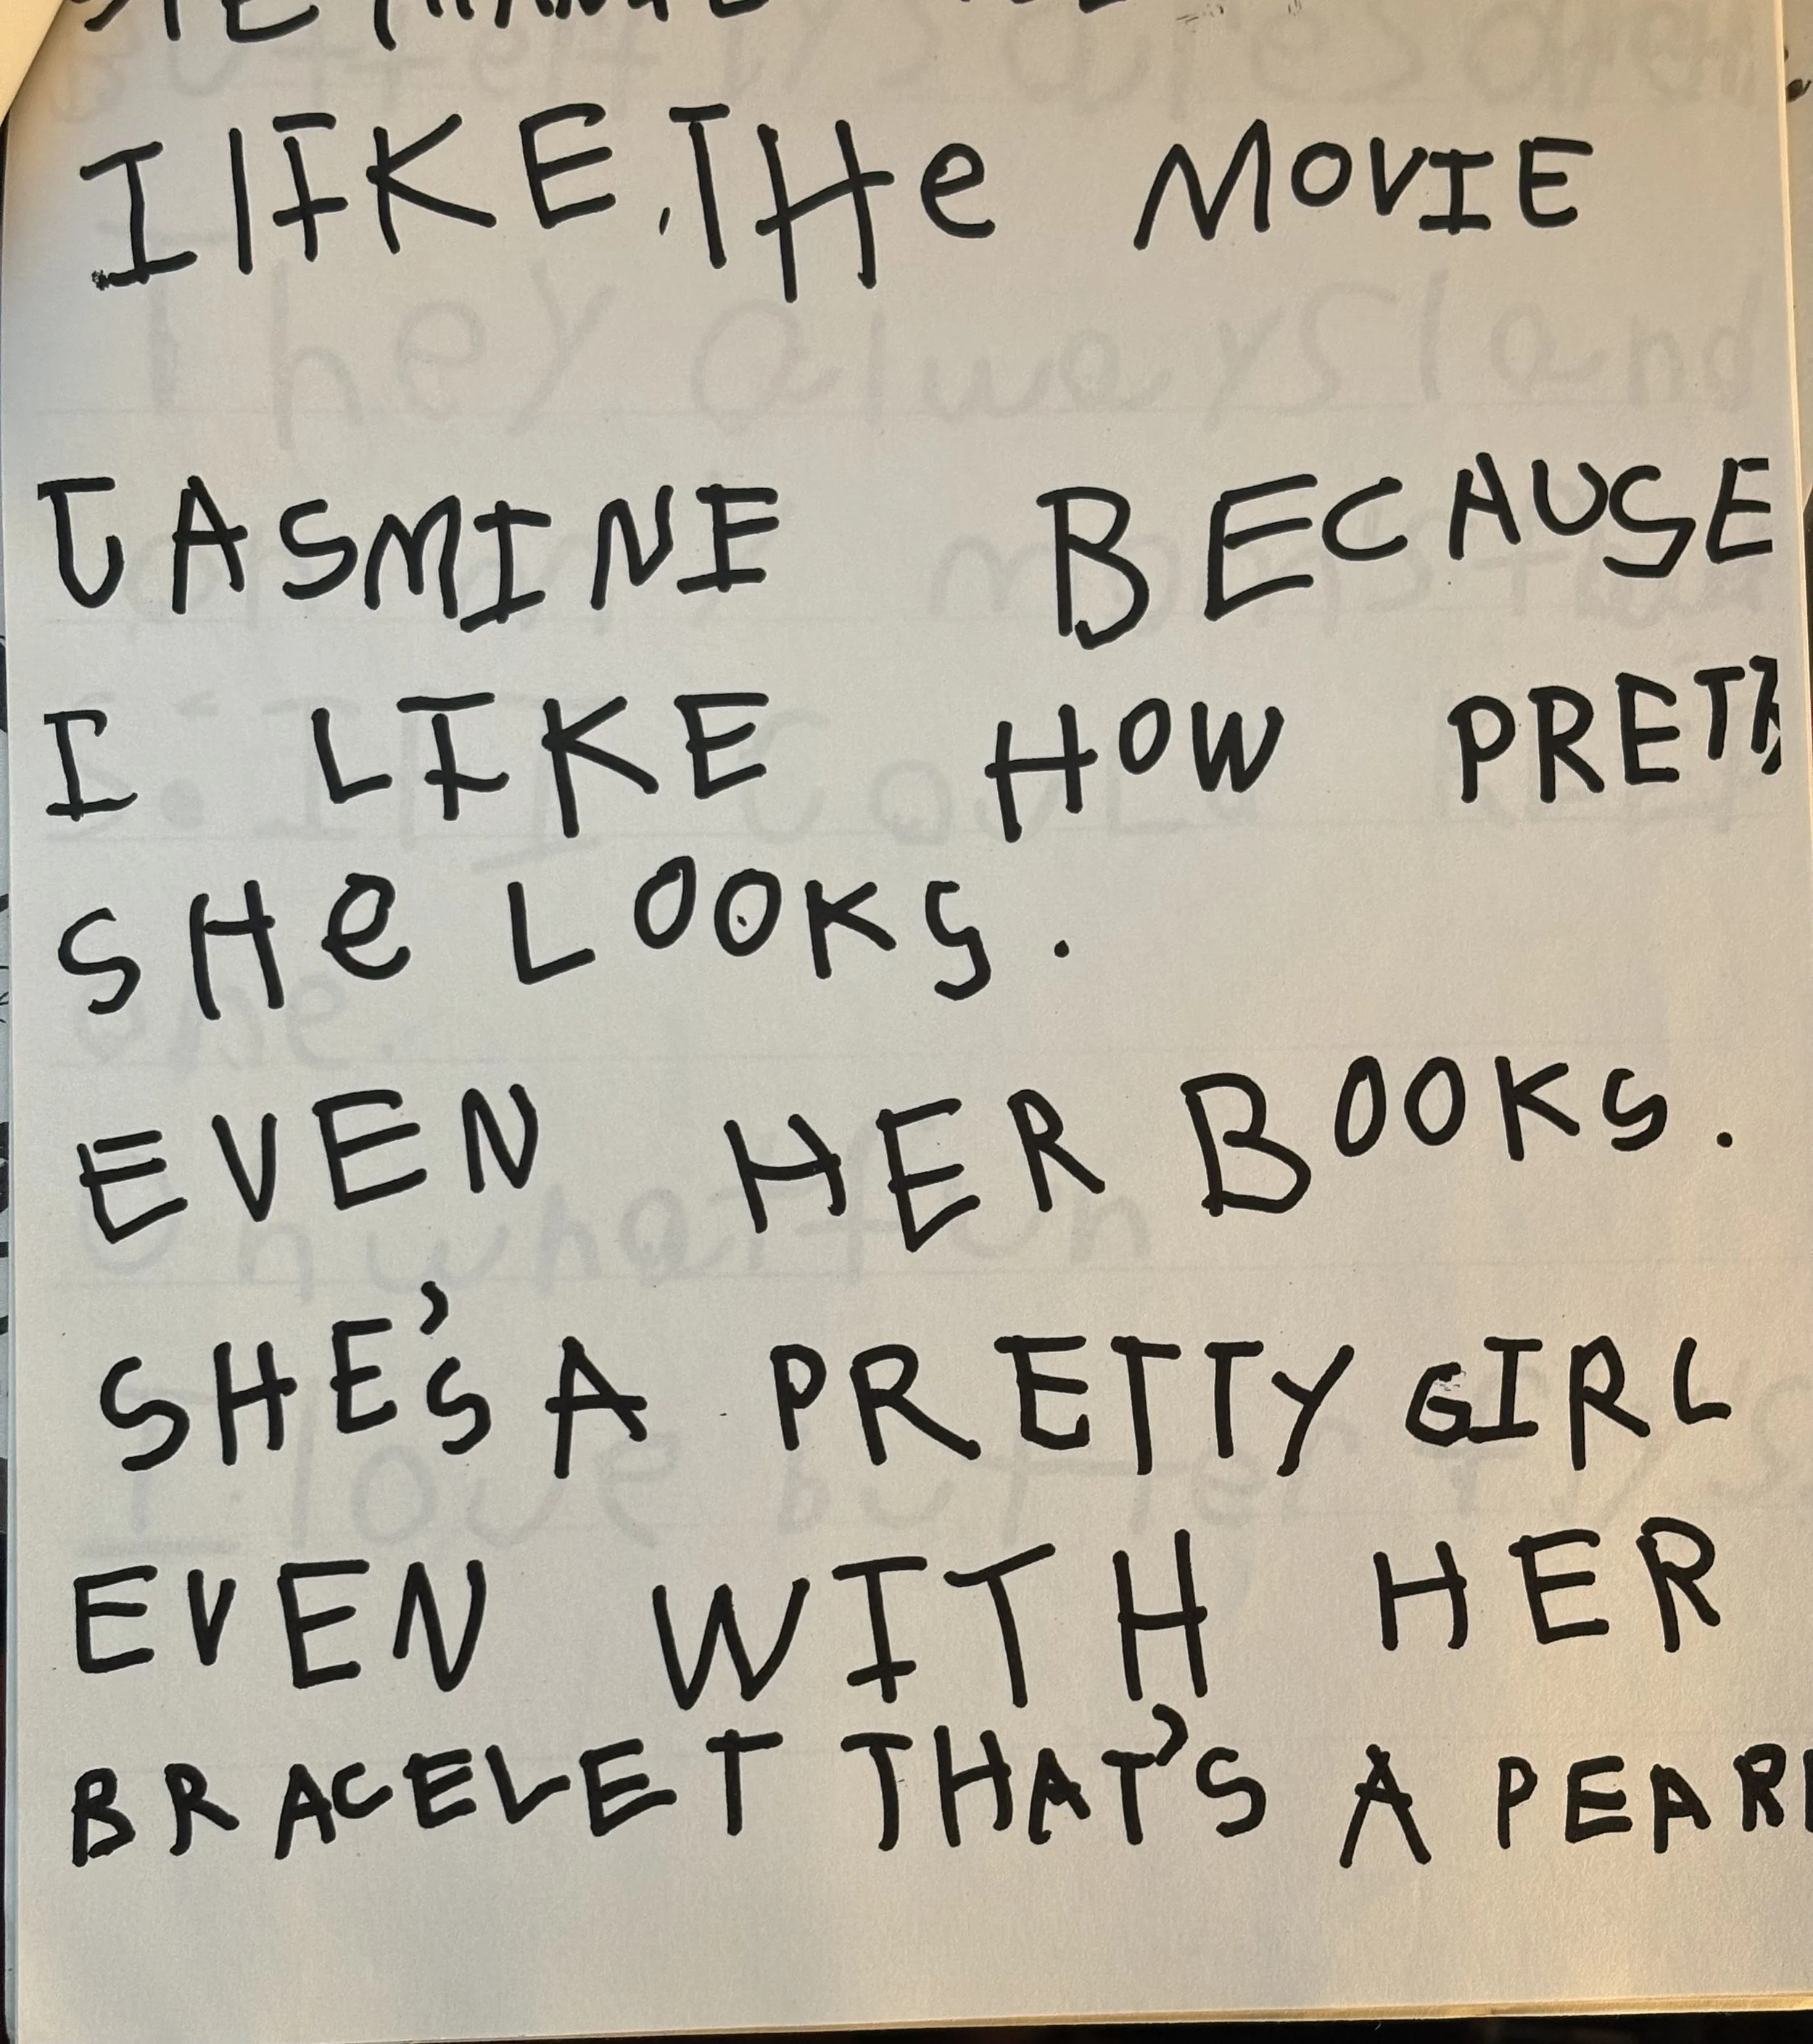 I lIKE, THe MOVIE
JASMINE BECAUSE
I LIKE HOW
SHe LOOKS.
EVEN HER BOOKS.
SHE'S A PRETTY GIRL
EVEN WITH HER
BRACELET THAT'S A